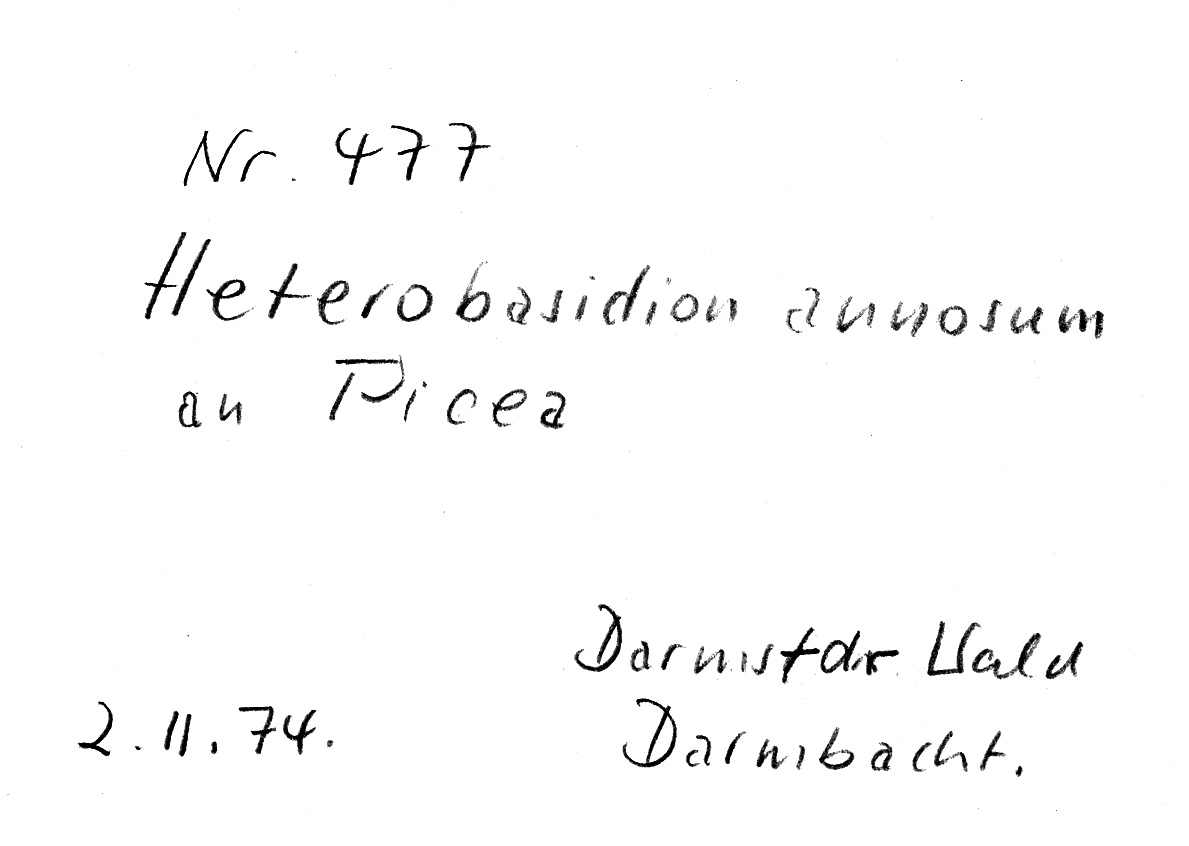 Nr. 477
Heterobasidion annosum
an Picea
Darmstdr. Wald
2.11.74.
Darmbacht.